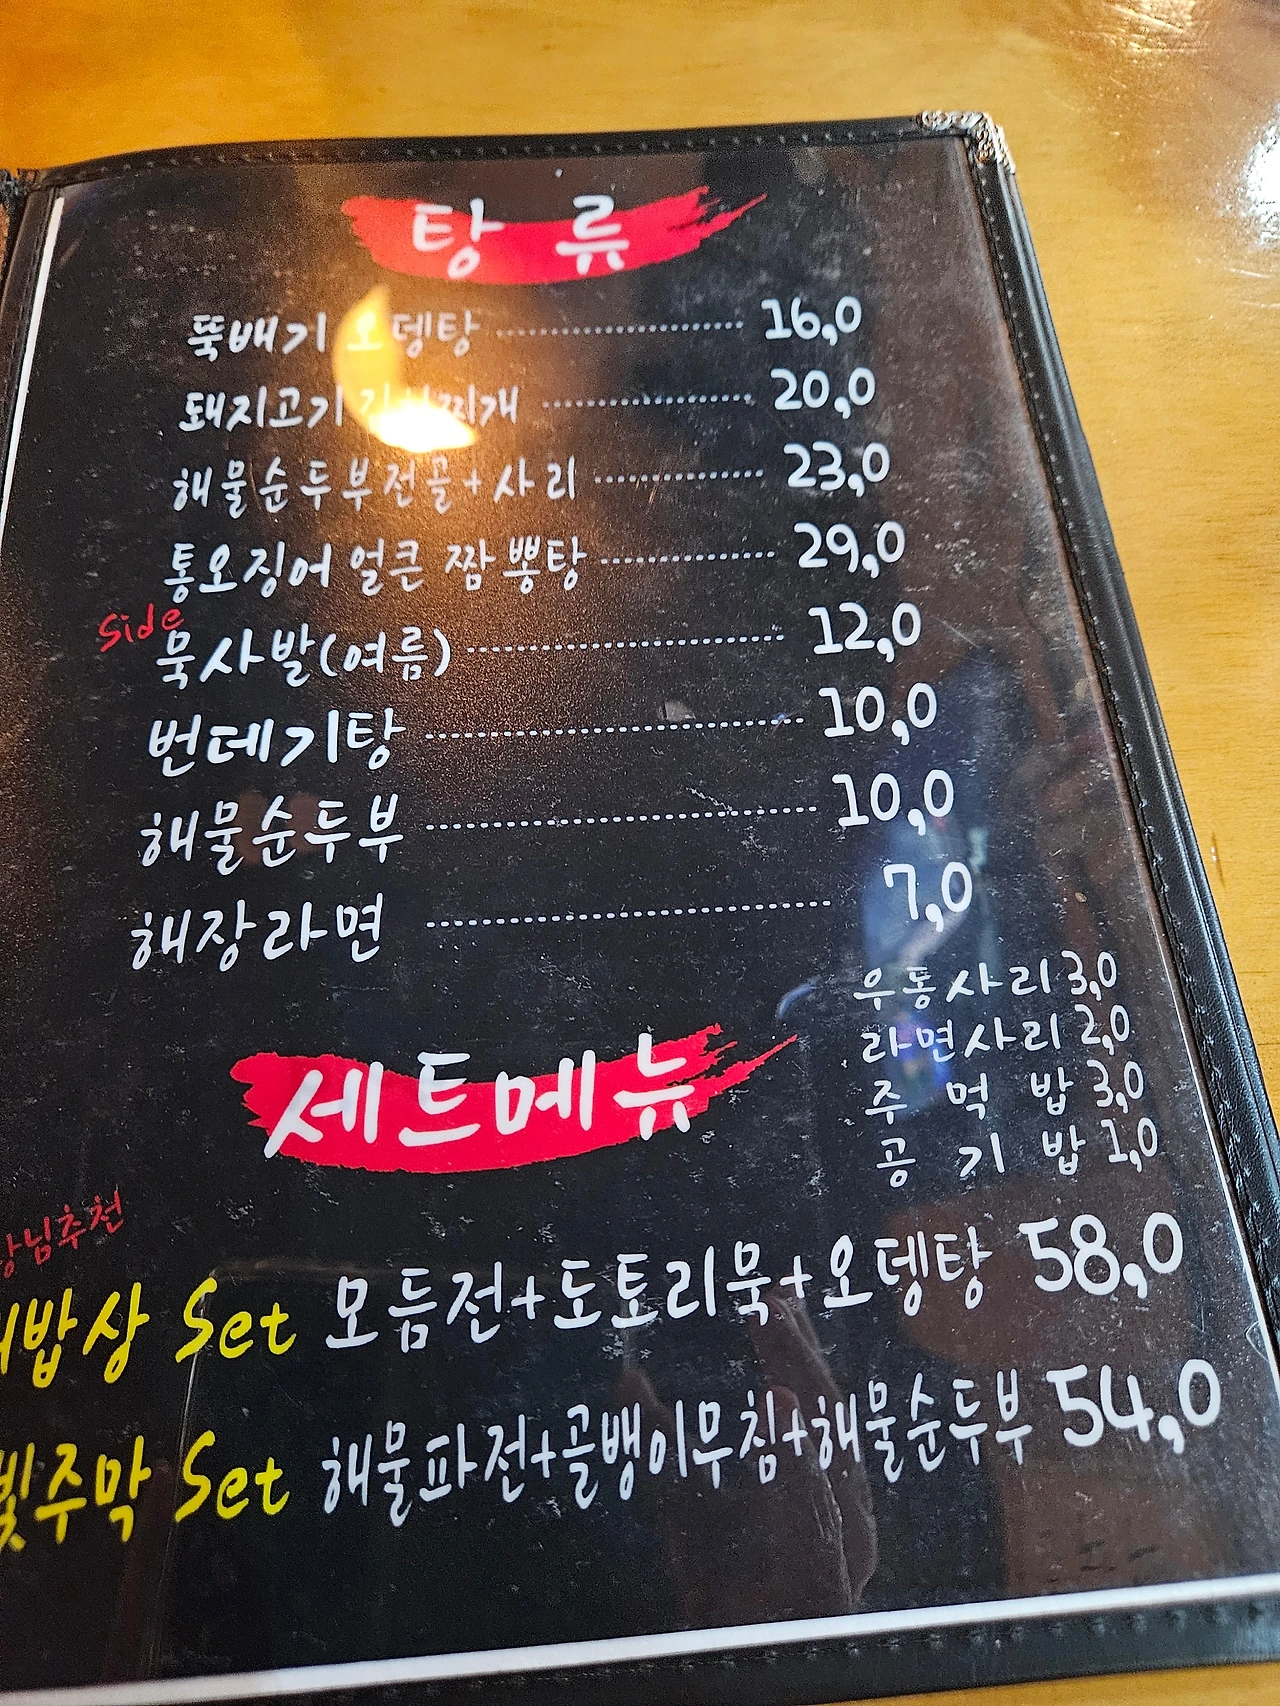 탕 류
뚝배기 오뎅탕 16,0
돼지고기 김치찌개 20,0
해물순두부전골+사리 23,0
통오징어 얼큰 짬뽕탕 29,0
Side
묵사발(여름) 12,0
번데기탕 10,0
해물순두부 10,0
해장라면 7,0
우동사리 3,0
라면사리 2,0
주 먹 밥 3,0
공 기 밥 1,0
세트메뉴
장님추천
밥상 Set 모듬전+도토리묵+오뎅탕 58,0
빛주막 Set 해물파전+골뱅이무침+해물순두부 54,0